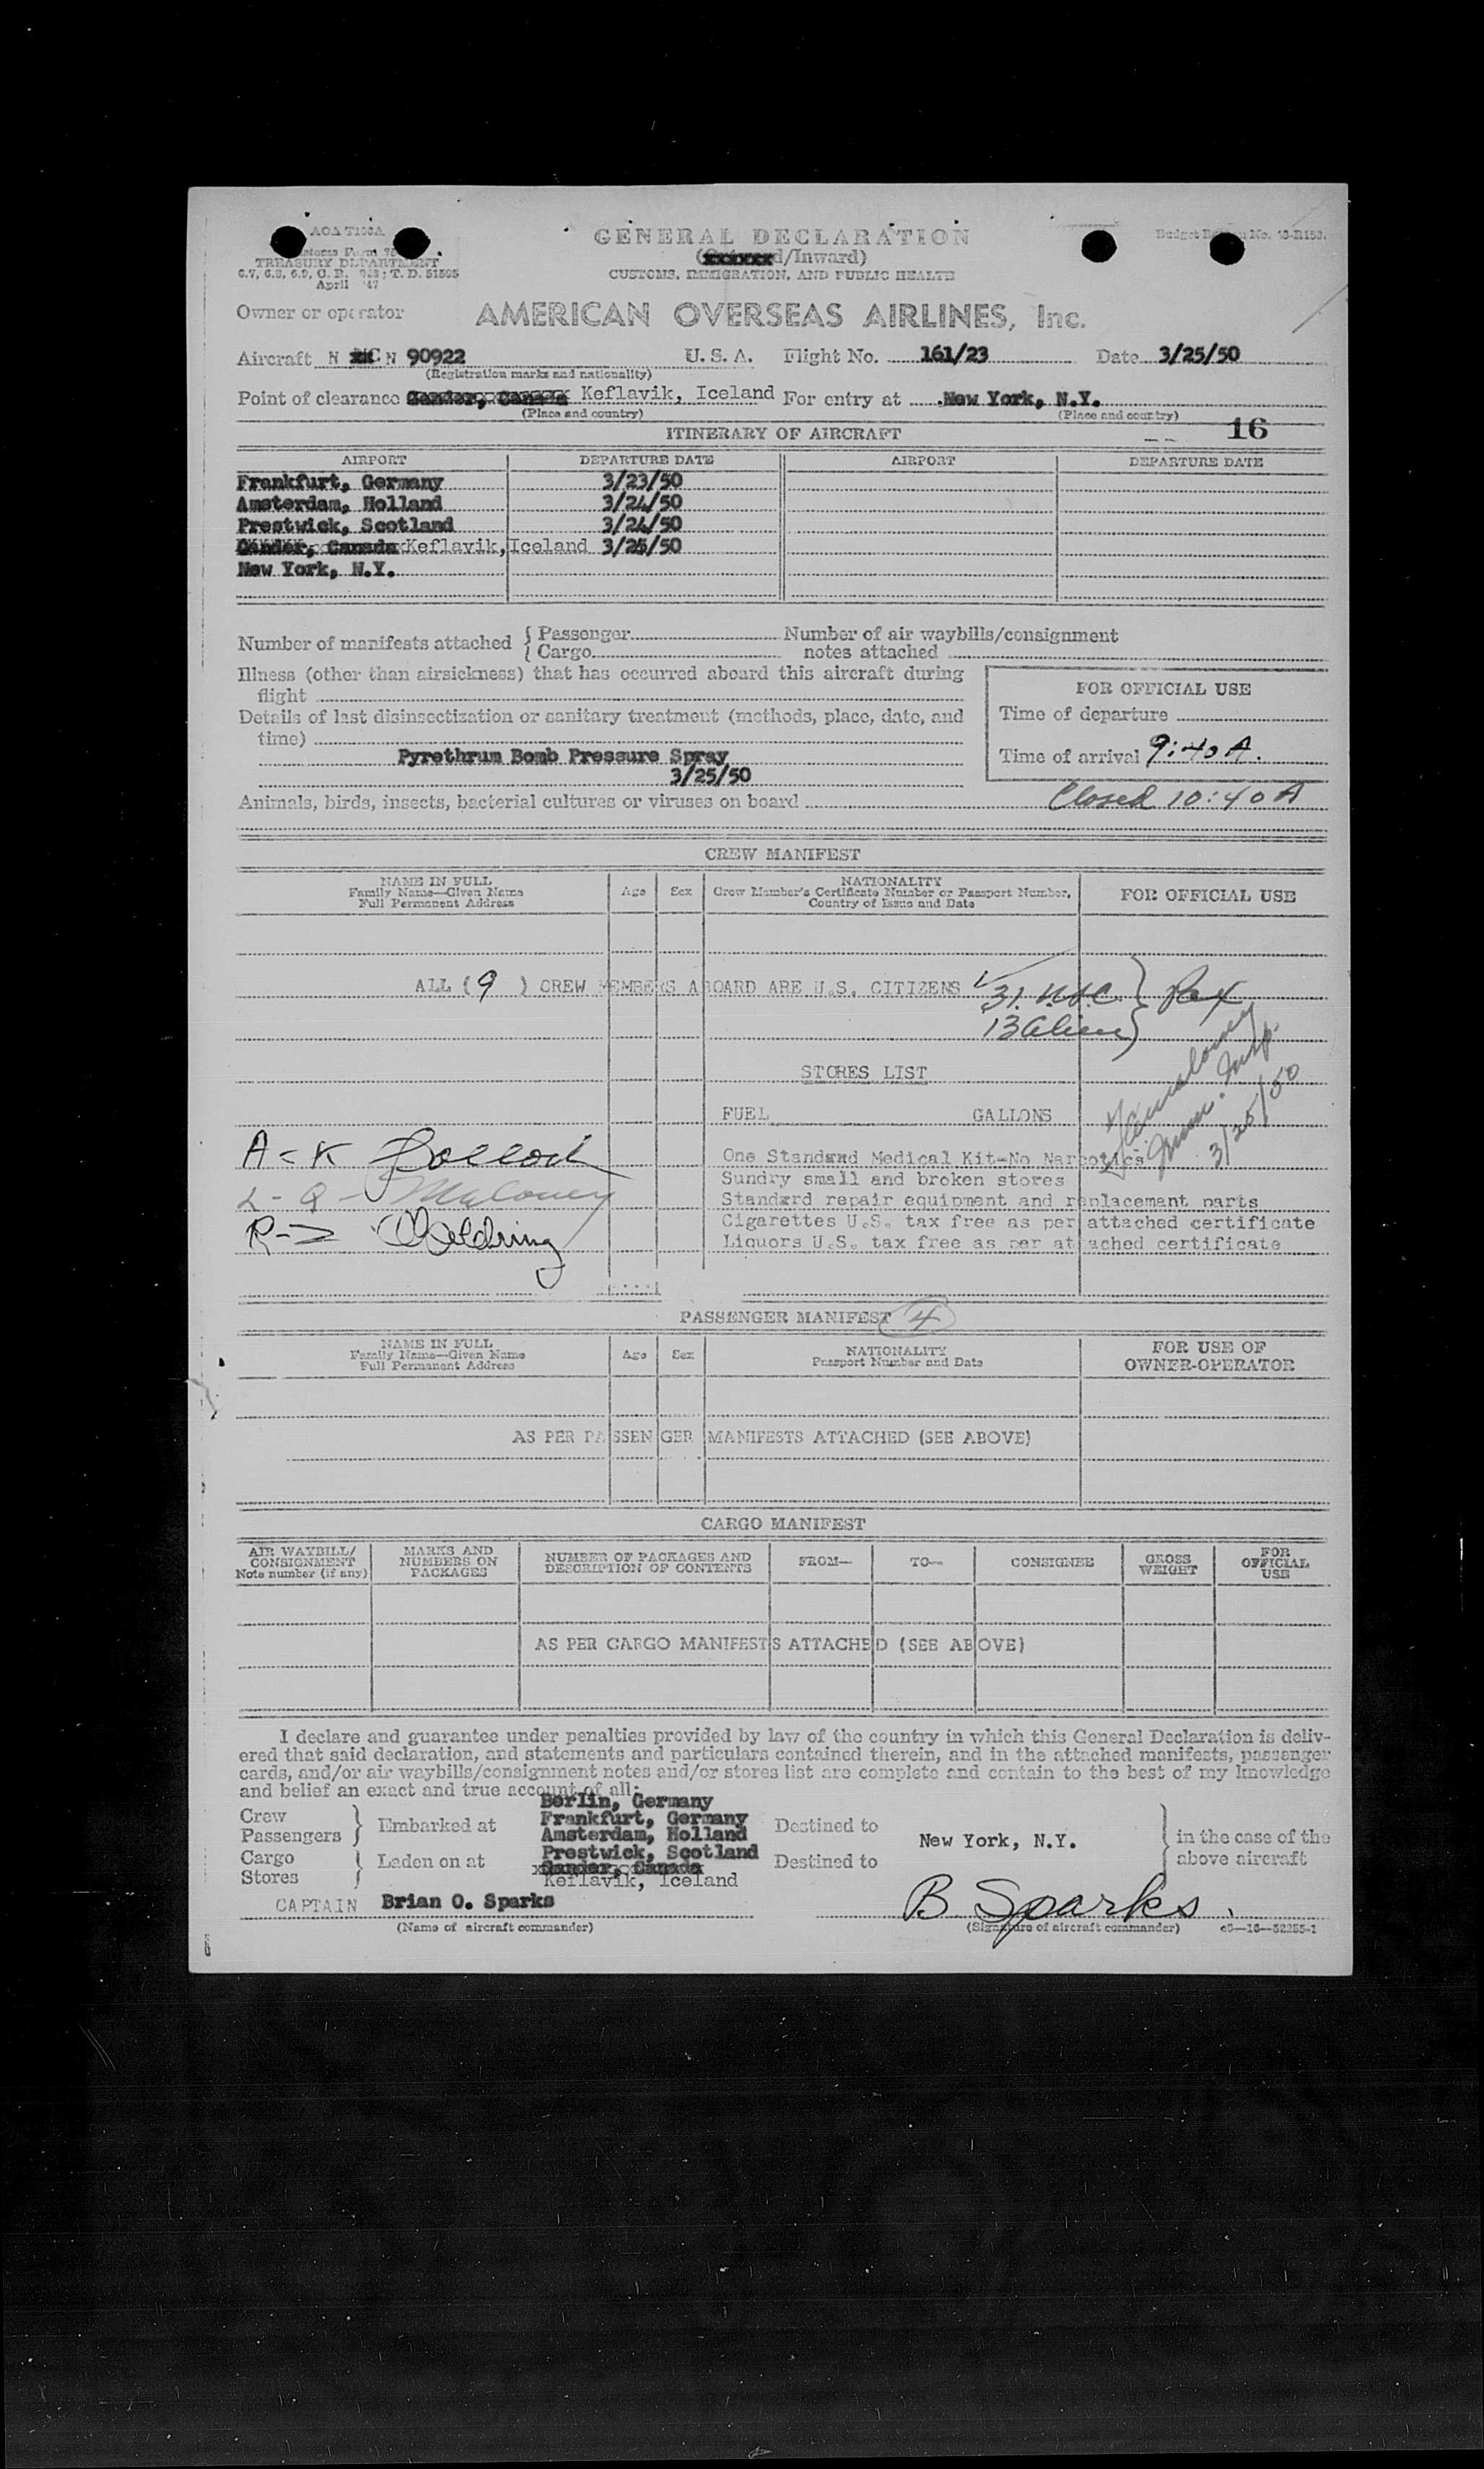 AOA T100A
GENERAL DECLARATION
d/Inward)
TREASURY DEPARTMENT
CUSTOMS, IMMIGRATION, AND PUBLIC HEALTH
April '47
Owner or operator AMERICAN OVERSEAS AIRLINES, Inc.
Aircraft N C N 90922 U. S. A. Flight No. 161/23 Date 3/25/50
(Registration marks and nationality)
Point of clearance Gander, Canada Keflavik, Iceland For entry at New York, N.Y.
(Place and country) (Place and country)
16
ITINERARY OF AIRCRAFT
AIRPORT DEPARTURE DATE AIRPORT DEPARTURE DATE
Frankfurt, Germany 3/23/50
Amsterdam, Holland 3/24/50
Prestwick, Scotland 3/24/50
Gander, Canada Keflavik, Iceland 3/25/50
New York, N.Y.
Number of manifests attached { Passenger Number of air waybills/consignment
{ Cargo notes attached
Illness (other than airsickness) that has occurred aboard this aircraft during
flight
FOR OFFICIAL USE
Details of last disinsectization or sanitary treatment (methods, place, date, and
time)
Time of departure
Pyrethrum Bomb Pressure Spray
Time of arrival 9:40 A.
3/25/50
Animals, birds, insects, bacterial cultures or viruses on board
Closed 10:40 A
CREW MANIFEST
NAME IN FULL
Family Name—Given Name
Full Permanent Address
Age Sex
NATIONALITY
Crew Member's Certificate Number or Passport Number,
Country of Issue and Date
FOR OFFICIAL USE
ALL (9) CREW MEMBERS ABOARD ARE U.S. CITIZENS
31 U.S.C. } Pax
13 Alien }
STORES LIST
FUEL GALLONS
Imm. Insp.
3/25/50
One Standard Medical Kit-No Narcotics
Sundry small and broken stores
Standard repair equipment and replacement parts
Cigarettes U.S. tax free as per attached certificate
Liquors U.S. tax free as per attached certificate
A - K
L - Q - Maloney
R - Z
PASSENGER MANIFEST 4
NAME IN FULL
Family Name—Given Name
Full Permanent Address
Age Sex
NATIONALITY
Passport Number and Date
FOR USE OF
OWNER-OPERATOR
AS PER PASSENGER MANIFESTS ATTACHED (SEE ABOVE)
CARGO MANIFEST
AIR WAYBILL/
CONSIGNMENT
Note number (if any)
MARKS AND
NUMBERS ON
PACKAGES
NUMBER OF PACKAGES AND
DESCRIPTION OF CONTENTS
FROM— TO— CONSIGNEE
GROSS
WEIGHT
FOR
OFFICIAL
USE
AS PER CARGO MANIFESTS ATTACHED (SEE ABOVE)
I declare and guarantee under penalties provided by law of the country in which this General Declaration is deliv-
ered that said declaration, and statements and particulars contained therein, and in the attached manifests, passenger
cards, and/or air waybills/consignment notes and/or stores list are complete and contain to the best of my knowledge
and belief an exact and true account of all:
Berlin, Germany
Crew
Passengers } Embarked at Frankfurt, Germany Destined to
Amsterdam, Holland
New York, N.Y. } in the case of the
above aircraft
Cargo
Stores } Laden on at Prestwick, Scotland Destined to
Gander, Canada
Keflavik, Iceland
CAPTAIN Brian O. Sparks B Sparks
(Name of aircraft commander) (Signature of aircraft commander)